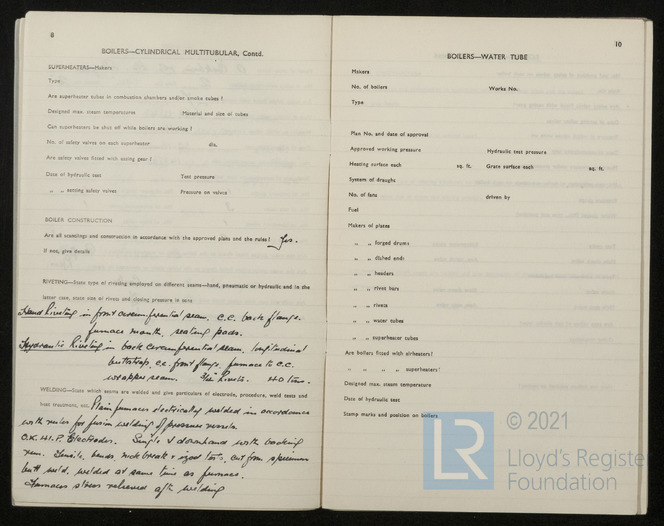 8
BOILERS—CYLINDRICAL MULTITUBULAR, Contd.
SUPERHEATERS—Makers
Type
Are superheater tubes in combustion chambers and/or smoke tubes?
Designed max. steam temperatures Material and size of tubes
Can superheaters be shut off while boilers are working?
No. of safety valves on each superheater dia.
Are safety valves fitted with easing gear?
Date of hydraulic test Test pressure
„ „ setting safety valves Pressure on valves
BOILER CONSTRUCTION
Are all scantlings and construction in accordance with the approved plans and the rules? Yes.
If not, give details
RIVETING—State type of riveting employed on different seams—hand, pneumatic or hydraulic and in the
latter case, state size of rivets and closing pressure in tons
Hand Riveting in front circumferential seam, C.C. back flange.
furnace mouth, seating pads.
Hydraulic Riveting in back circumferential seam, longitudinal
buttstrap, c.c. front flange, furnace to C.C.
wrapper seam. Rivets. 40 tons.
WELDING—State which seams are welded and give particulars of electrode, procedure, weld tests and
heat treatment, etc. Plain furnaces electrically welded in accordance
with rules for fusion welding of pressure vessels.
O.K. Electrodes. Single V downhand with backing
run. Tensile, bends nick break & izod tests, cut from specimen
butt weld, welded at same time as furnace.
Furnaces stress relieved after welding
10
BOILERS—WATER TUBE
Makers
No. of boilers Works No.
Type
Plan No. and date of approval
Approved working pressure Hydraulic test pressure
Heating surface each sq. ft. Grate surface each sq. ft.
System of draught
No. of fans driven by
Fuel
Makers of plates
„ „ forged drums
„ „ dished ends
„ „ headers
„ „ rivet bars
„ „ rivets
„ „ water tubes
„ „ superheater tubes
Are boilers fitted with airheaters?
„ „ „ „ superheaters?
Designed max. steam temperature
Date of hydraulic test
Stamp marks and position on boilers
LR
© 2021
Lloyd's Register
Foundation